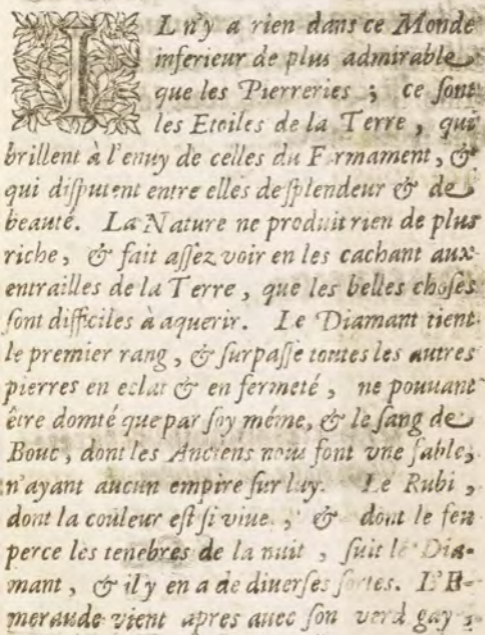 IL n'y a rien dans ce Monde
inferieur de plus admirable
que les Pierreries ; ce sont
les Etoiles de la Terre, qui
brillent à l'enuy de celles du Firmament, &
qui disputent entre elles de splendeur & de
beauté. La Nature ne produit rien de plus
riche, & fait assez voir en les cachant aux
entrailles de la Terre, que les belles choses
sont difficiles à aquerir. Le Diamant tient
le premier rang, & surpasse toutes les autres
pierres en eclat & en fermeté, ne pouuant
être domté que par soy méme, & le sang de
Bouc, dont les Anciens nous font vne fable,
n'ayant aucun empire sur luy. Le Rubi,
dont la couleur est si viue, & dont le feu
perce les tenebres de la nuit, suit le Dia-
mant, & il y en a de diuerses sortes. L'E-
meraude vient apres auec son verd gay,